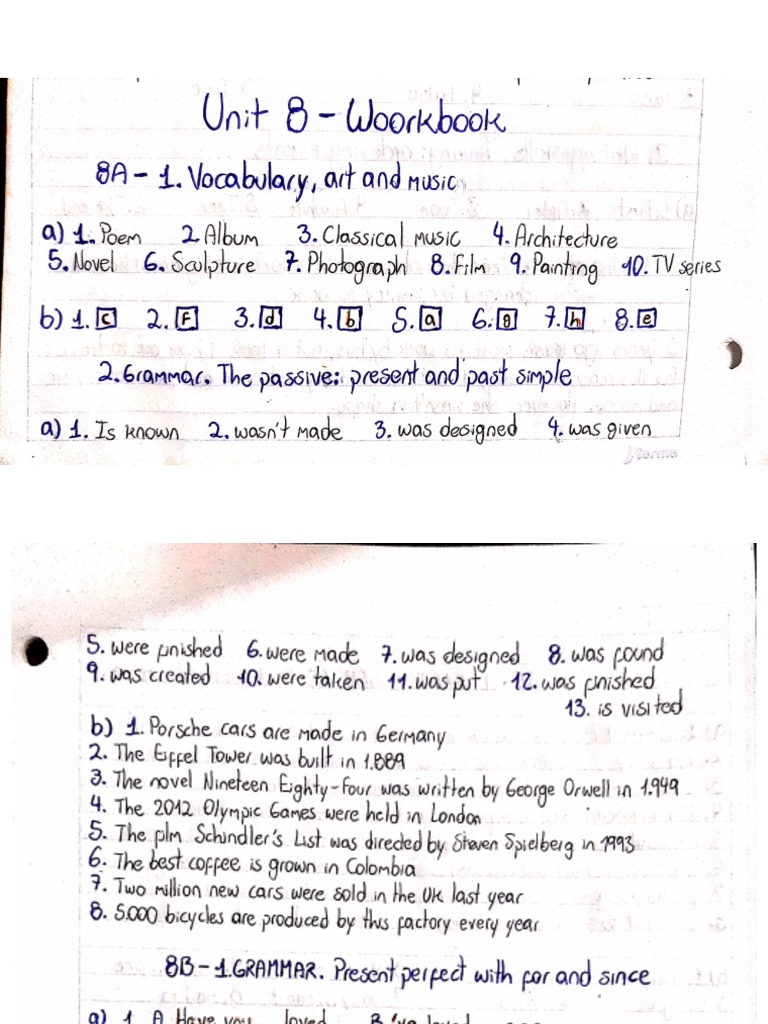 Unit 8 - Woorkbook
8A - 1. Vocabulary, art and music
a) 1. Poem 2. Album 3. Classical music 4. Architecture
5. Novel 6. Sculpture 7. Photograph 8. Film 9. Painting 10. TV series
b) 1. c 2. F 3. d 4. b 5. a 6. g 7. h 8. e
2. Grammar. The passive: present and past simple
a) 1. Is known 2. wasn't made 3. was designed 4. was given
5. were finished 6. were made 7. was designed 8. was found
9. was created 10. were taken 11. was put 12. was finished
13. is visited
b) 1. Porsche cars are made in Germany
2. The Eiffel Tower was built in 1.889
3. The novel Nineteen Eighty-Four was written by George Orwell in 1.949
4. The 2012 Olympic Games were held in London
5. The film Schindler's List was directed by Steven Spielberg in 1993
6. The best coffee is grown in Colombia
7. Two million new cars were sold in the UK last year
8. 5.000 bicycles are produced by this factory every year
8B - 1. GRAMMAR. Present perfect with for and since
a) 1. A Have you loved B 've loved